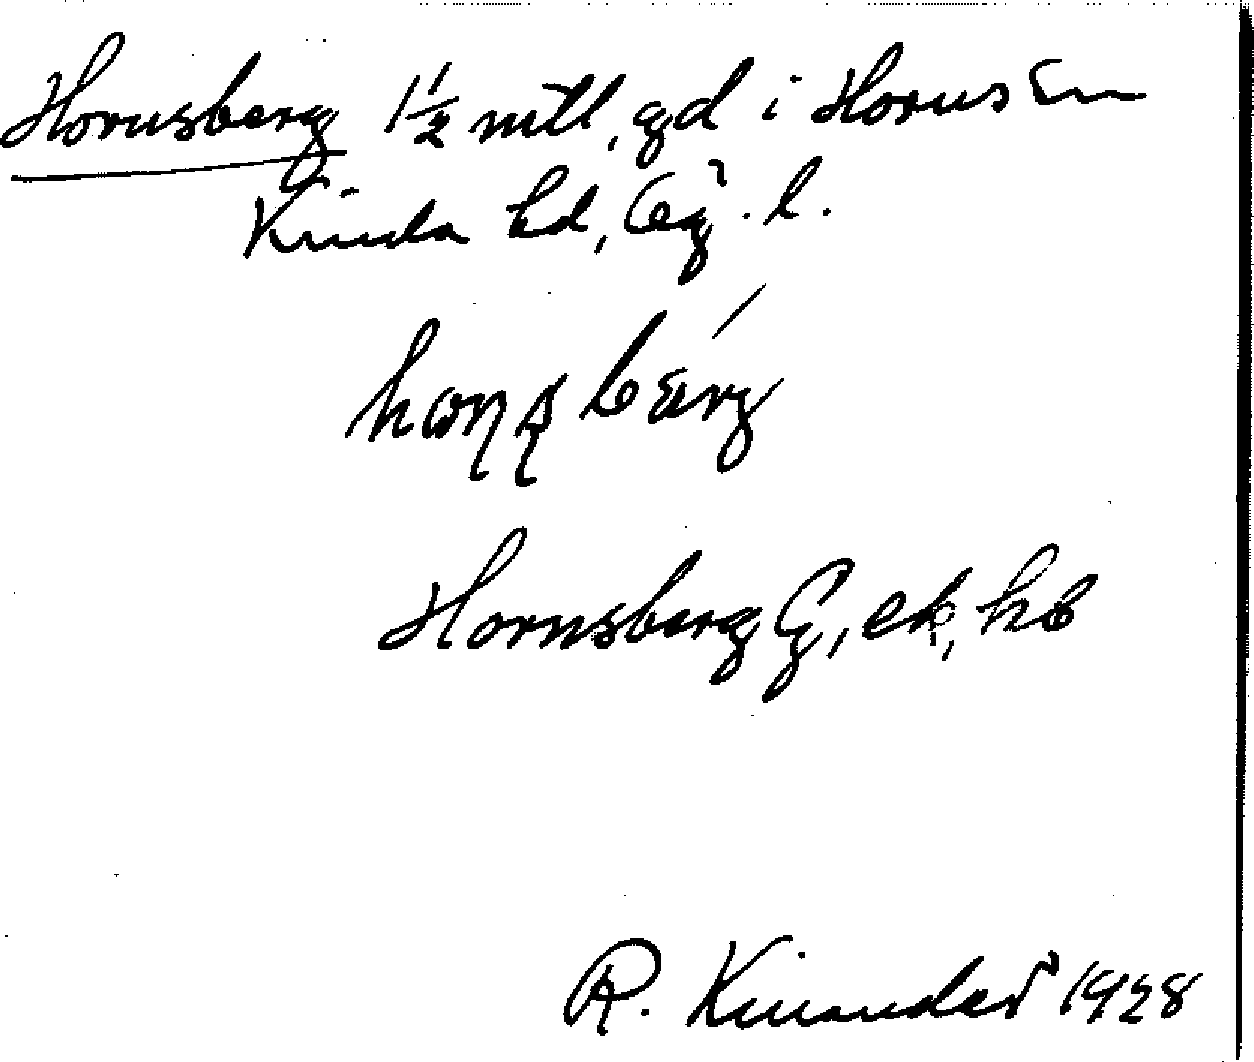 Hornsberg 1½ mtl, gd i Horns sn
Kinda hd, Ög. l.
Hornsberg G, ek, hb
R. Kinander 1928